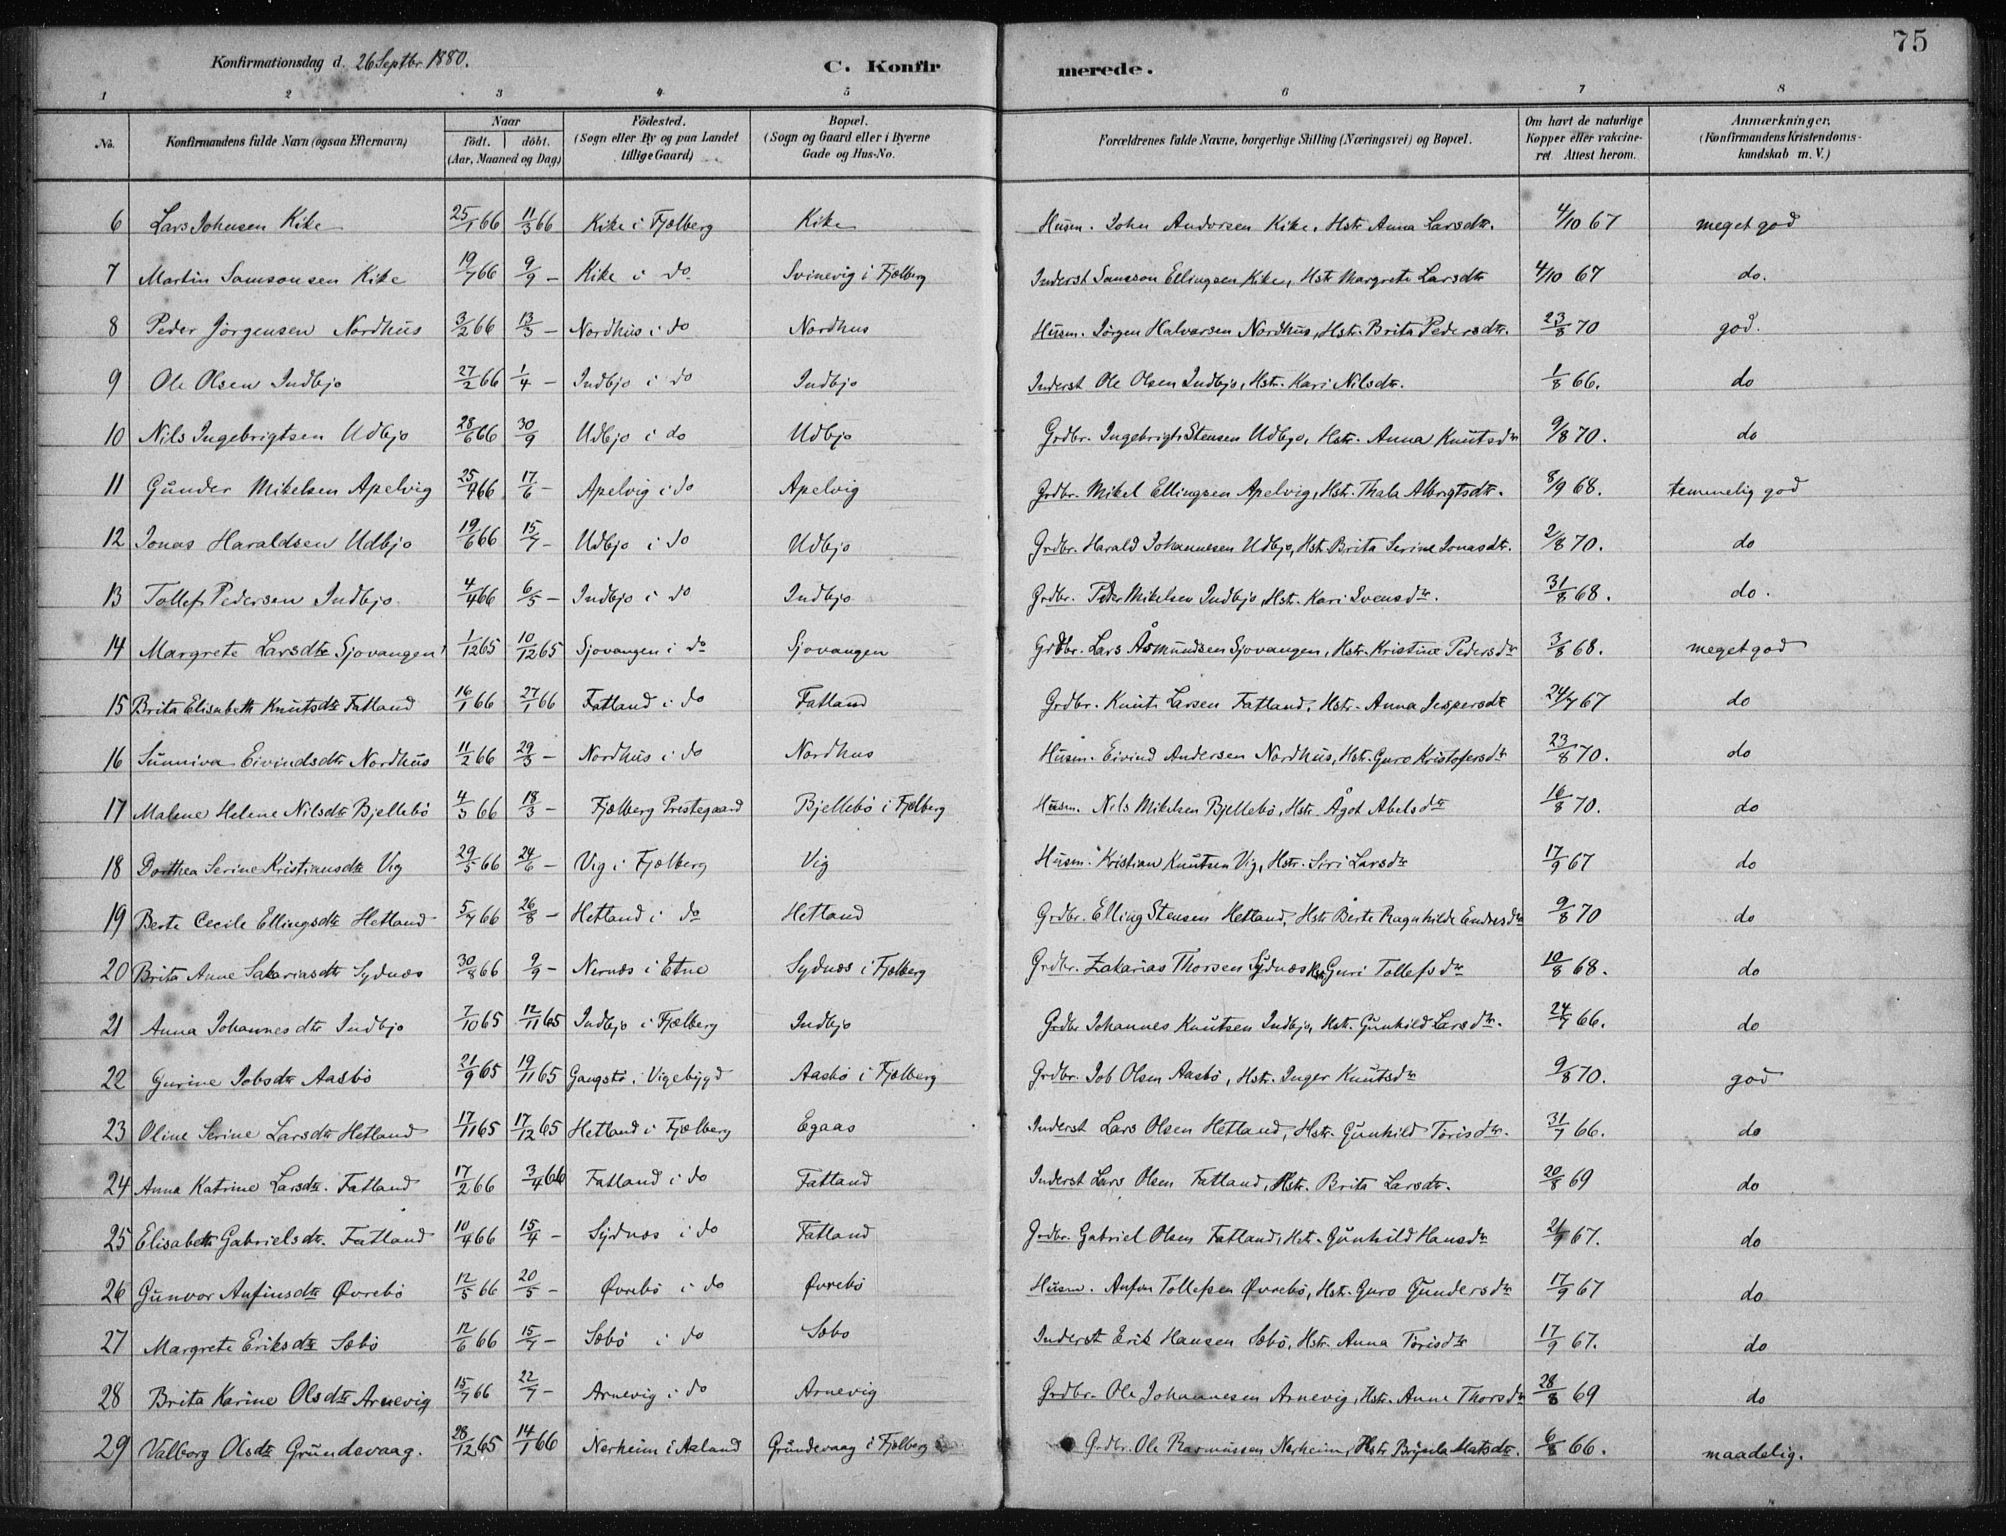 75
Konfirmationsdag d. 26 Septbr 1880.
C. Konfirmerede.
1 2 3 4 5 6 7 8
No. Konfirmandens fulde Navn (ogsaa Efternavn) Naar födt. döbt. (Aar, Maaned og Dag) Födested. (Sogn eller By og paa Landet tillige Gaard) Bopæl. (Sogn og Gaard eller i Byerne Gade og Hus-No. Forældrenes fulde Navne, borgerlige Stilling (Næringsvei) og Bopæl. Om havt de naturlige Kopper eller vakcineret. Attest herom. Anmærkninger, (Konfirmandens Kristendomskundskab m. V.)
6 Lars Johnsen Kike 25/1 66 11/3 66 Kike i Fjælberg Kike Husm. John Andersen Kike, Hstr. Anna Larsdtr. 4/10 67 meget god
7 Martin Samsonsen Kike 19/7 66 9/9 - Kike i do Svinevig i Fjælberg Inderst Samson Ellingsen Kike, Hstr Margrete Larsdtr 4/10 67 do.
8 Peder Jörgensen Nordhus 3/2 66 13/3 - Nordhus i do Nordhus Husm. Jörgen Halvorsen Nordhus, Hstr. Brita Pedersdtr. 23/8 70 god.
9 Ole Olsen Indbjo 27/2 66 1/4 - Indbjo i do Indbjo Inderst Ole Olsen Indbjo, Hstr. Kari Nilsdtr. 1/8 66. do
10 Nils Ingebrigtsen Udbjo 28/6 66 30/9 Udbjo i do Udbjo Grdbr. Ingebrigt Stensen Udbjo, Hstr. Anna Knutsdtr 9/8 70. do
11 Gunder Mikelsen Apelvig 25/4 66 17/6 - Apelvig i do Apelvig Grdbr. Mikel Ellingsen Apelvig, Hstr. Thala Albrigtsdtr. 8/9 68. temmelig god
12 Jonas Haraldsen Udbjo 19/6 66 15/7 - Udbjo i do Udbjo Grdbr. Harald Johannesen Udbjo, Hstr. Brita Serine Jonasdtr. 2/8 70. do
13 Tollef Pedersen Indbjo. 4/4 66 6/5 - Indbjo i do Indbjo Grdbr. Peder Mikelsen Indbjo, Hstr. Kari Svensdtr. 31/8 68. do.
14 Margrete Larsdtr Sjovangen 1/12 65 10/12 65 Sjovangen i do Sjovangen Grdbr. Lars Åsmundsen Sjovangen, Hstr. Kristine Pedersdtr 3/8 68. meget god
15 Brita Elisabeth Knutsdtr Fatland 16/1 66 27/1 66 Fatland i do Fatland Grdbr. Knut Larsen Fatland, Hstr. Anna Jespersdtr 24/7 67 do
16 Sunniva Eivindsdtr Nordhus 11/2 66 29/3 - Nordhus i do Nordhus Husm. Eivind Andersen Nordhus, Hstr. Guro Kristofersdtr 23/8 70. do
17 Malene Helene Nilsdtr Bjellebö 4/3 66 18/3 - Fjælberg Prestegaard Bjellebö i Fjælberg Husm. Nils Mikelsen Bjellebö, Hstr. Ågot Abelsdtr 16/8 70. do
18 Dorthea Serine Kristiansdtr Vig 29/5 66 24/6 - Vig i Fjælberg Vig Husm. Kristian Knutsen Vig, Hstr. Siri Larsdtr 17/9 67 do
19 Berte Cecile Ellingsdtr Hetland 5/7 66 26/8 - Hetland i do Hetland Grdbr. Elling Stensen Hetland, Hstr Berte Ragnhilde Endresdtr 9/8 70 do
20 Brita Anne Sakariasdtr Sydnæs 30/8 66 9/9 - Nernæs i Etne Sydnæs i Fjælberg Grdbr. Zakarias Thorsen Sydnæs Hstr Guri Tollefsdtr 10/8 68. do
21 Anna Johannesdtr Indbjo 7/10 65 12/11 65 Indbjo i Fjælberg Indbjo Grdbr Johannes Knutsen Indbjo, Hstr. Gunhild Larsdtr. 24/7 66. do
22 Gurine Jobsdtr Aasbö 21/9 65 19/11 65 Gangstö i Vigebygd Aasbö i Fjælberg Grdbr. Job Olsen Aasbö, Hstr. Inger Knutsdtr 9/8 70. god
23 Oline Serine Larsdtr Hetland 17/11 65 17/12 65 Hetland i Fjælberg Egaas Inderst Lars Olsen Hetland, Hstr. Gunhild Torisdtr. 31/7 66. do
24 Anna Katrine Larsdtr. Fatland 17/2 66 3/4 66 Fatland i do Fatland Inderst Lars Olsen Fatland, Hstr. Brita Larsdtr. 20/8 69 do
25 Elisabeth Gabrielsdtr. Fatland 10/4 66 15/4 - Sydnæs i do Fatland Grdbr. Gabriel Olsen Fatland, Hstr. Gunhild Hansdtr 21/9 67. do
26 Gunvor Anfinsdtr Øvrebö 12/5 66 20/5 - Øvrebö i do Øvrebö Husm. Anfin Tollefsen Øvrebö, Hstr. Guro Gundersdtr 17/9 67 do
27 Margrete Eriksdtr Sæbö 12/6 66 15/7 - Sæbö i do Sæbo Inderst Erik Hansen Sæbö, Hstr. Anna Torisdtr 17/9 67. do
28 Brita Karine Olsdtr Arnevig 15/7 66 22/7 - Arnevig i do Arnevig Grdbr. Ole Johannesen Arnevig, Hstr. Anne Thorsdtr 28/8 69 do
29 Valborg Olsdtr Grundevaag. 28/12 65 14/1 66 Nerheim i Aaland Grundevaag i Fjelberg Grdbr. Ole Rasmussen Nerheim, Hstr Brynla Matsdtr. 6/8 66. maadelig.